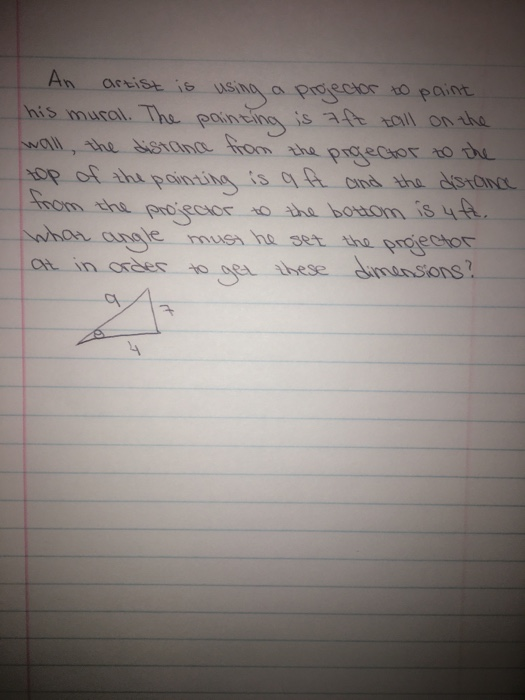 An artist is using a projector to paint
his mural. The painting is 7ft tall on the
wall, the distance from the projector to the
top of the painting is 9 ft and the distance
from the projector to the bottom is 4 ft.
What angle must he set the projector
at in order to get these dimensions?
9
7
θ
4